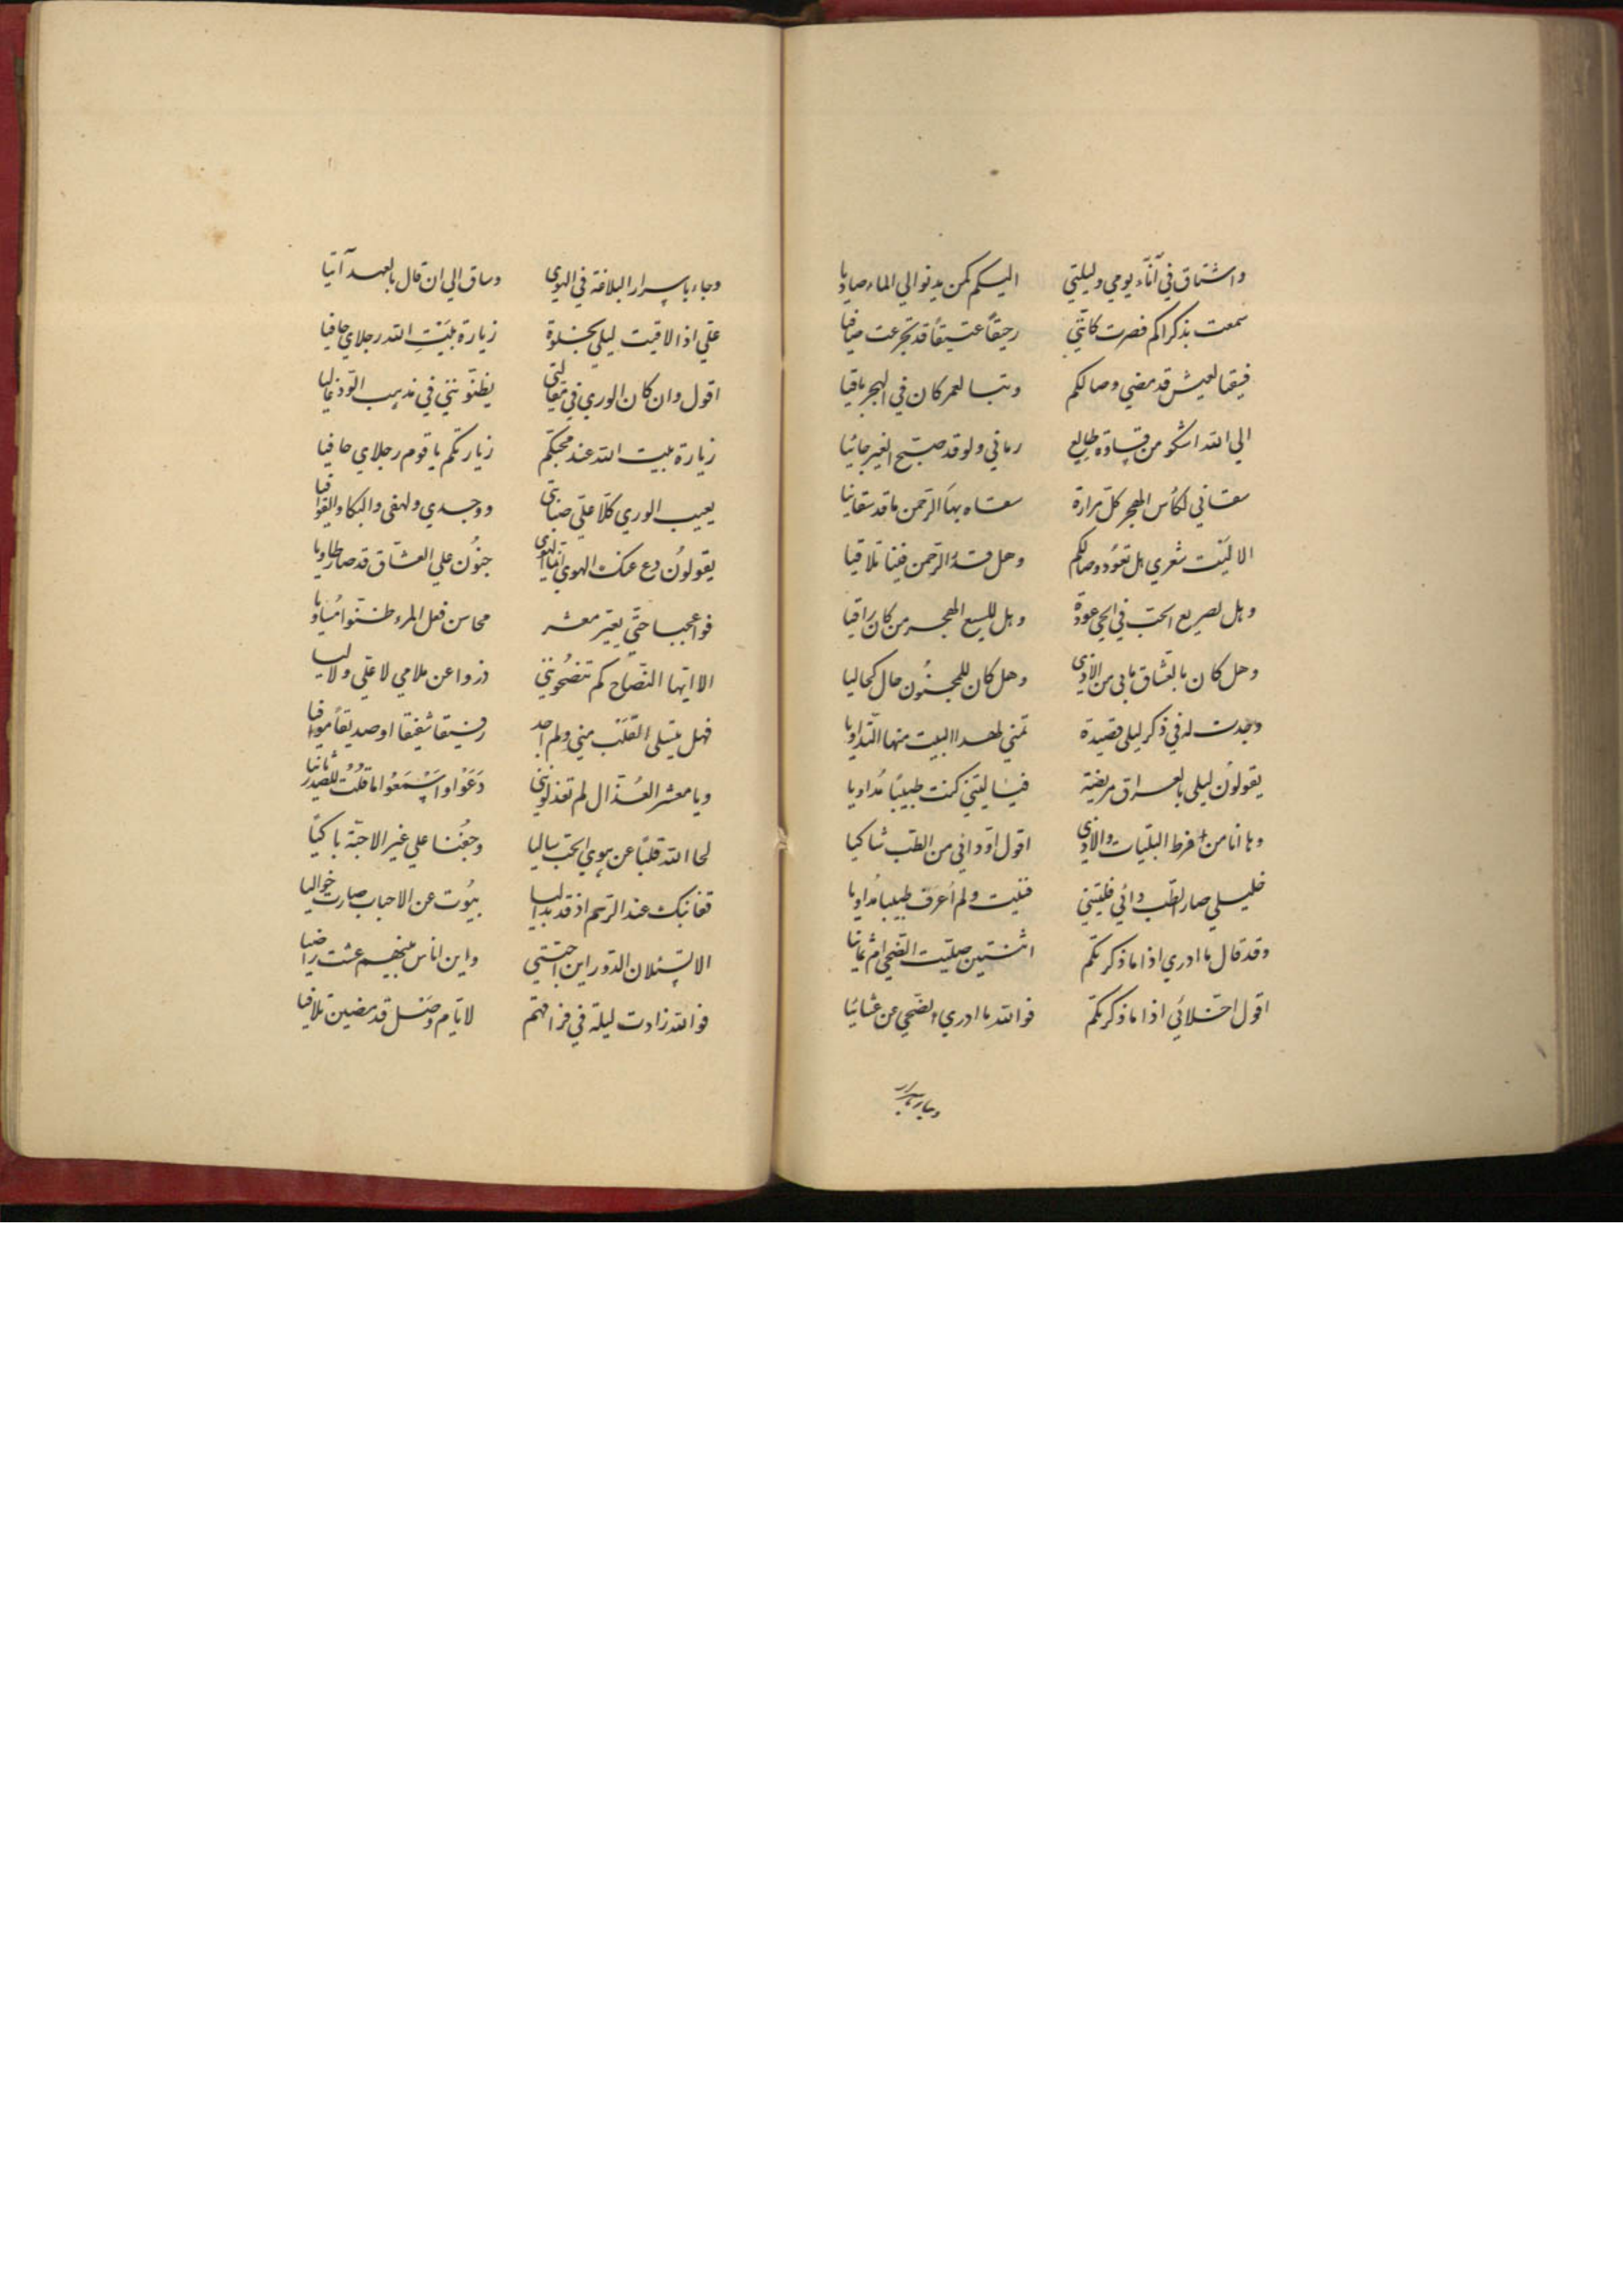 واشتاق في آناء يومي وليلتي اليكم كمن يدنو الي الماء صاديا
سمعت بذكراكم فصرت كانّني رحيقاً عتيقاً قد تجرعت صافيا
فيقا لعيش قد مضي وصالكم وتبا لعمر كان في الهجر باقيا
الي الله اشكو من قساوة طالع رماني ولو قد صبح الغير جانيا
سقاني لكأس الهجر كل مرارة سقاه بها الرحمن ما قد سقانيا
الا ليت شعري هل تعود وصالكم وهل قدّ الرحمن فينا تلاقيا
وهل لصريع الحب في الحي عودة وهل للسيع الهجر من كان راقيا
وهل كان بالعشاق مابي من الاذي وهل كان للمجنون حال كحاليا
وجدت له في ذكر ليلي قصيدة تمني لهذا البيت منها التداويا
يقولون ليلي بالعراق مريضة فيا ليتني كنت طبيبًا مُداويا
وها انا من فرط البليات والاذي اقول اوداني من الطب شاكيا
خليلي صار الطب دائي فليتني فنيت ولم أعرف طبيبا مُداويا
وقد قال ما ادري اذا ما ذكرتكم اثنتين صليت الضحي ام ثمانيا
اقول اخلائي اذا ما ذكرتكم فوالله ما ادري الضحي من عشائيا
وجاء باسرار
وجاء باسرار البلاغة في الهوي وساق الي ان قال بالعهد آتيا
عليّ اذا لاقيت ليلي بخلوة زيارة بَيْتِ الله رجلاي حافيا
اقول وان كان الوري في مقالتي يظنونني في مذهب التود غاليا
زيارة بيت الله عند محبكم زيارتكم يا قوم رجلاي حافيا
يعيب الوري كلا علي صبابتي ووجدي ولهفي والبكا والقوافيا
يقولون دع عنك الهوي انما الهوي جنُون علي العشاق قد صار طاويا
فواعجبا حتي يعيّر معشر محاسن فعل المرء ظنّوا مساويا
الا ايها النصاح كم تنصحونني ذروا عن ملامي لا عليّ ولا ليا
فهل يتسلى القلب مني ولم اجد رفيقا شفيقا او صديقاً موافيا
ويا معشر العُذّال لم تعذلونني دَعَوْا واسْمَعُوا ما قلت للصدر ثانيا
لحا الله قلبًا عن هوي الحب ساليا وجَفْنا علي غير الاحبّة باكيًا
قفا نبك عند الرسم اذ قد بدا ليا بيُوت عن الاحباب صارت خواليا
الا تسئلان الدور اين احبتي واين اناس بينهم عشت راضيا
فوالله زادت ليلة في فراقهم لايام وصل قد مضين تلافيا